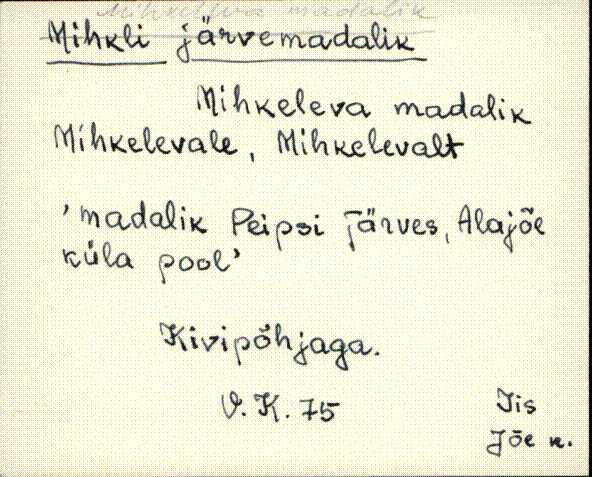 Mihkeleva madalik
Mihkli järvemadalik
Mihkeleva madalik
Mihkelevale, Mihkelevalt
'madalik Peipsi järves, Alajõe
küla pool'
Kivipõhjaga.
V. K. 75
Iis
Jõe k.